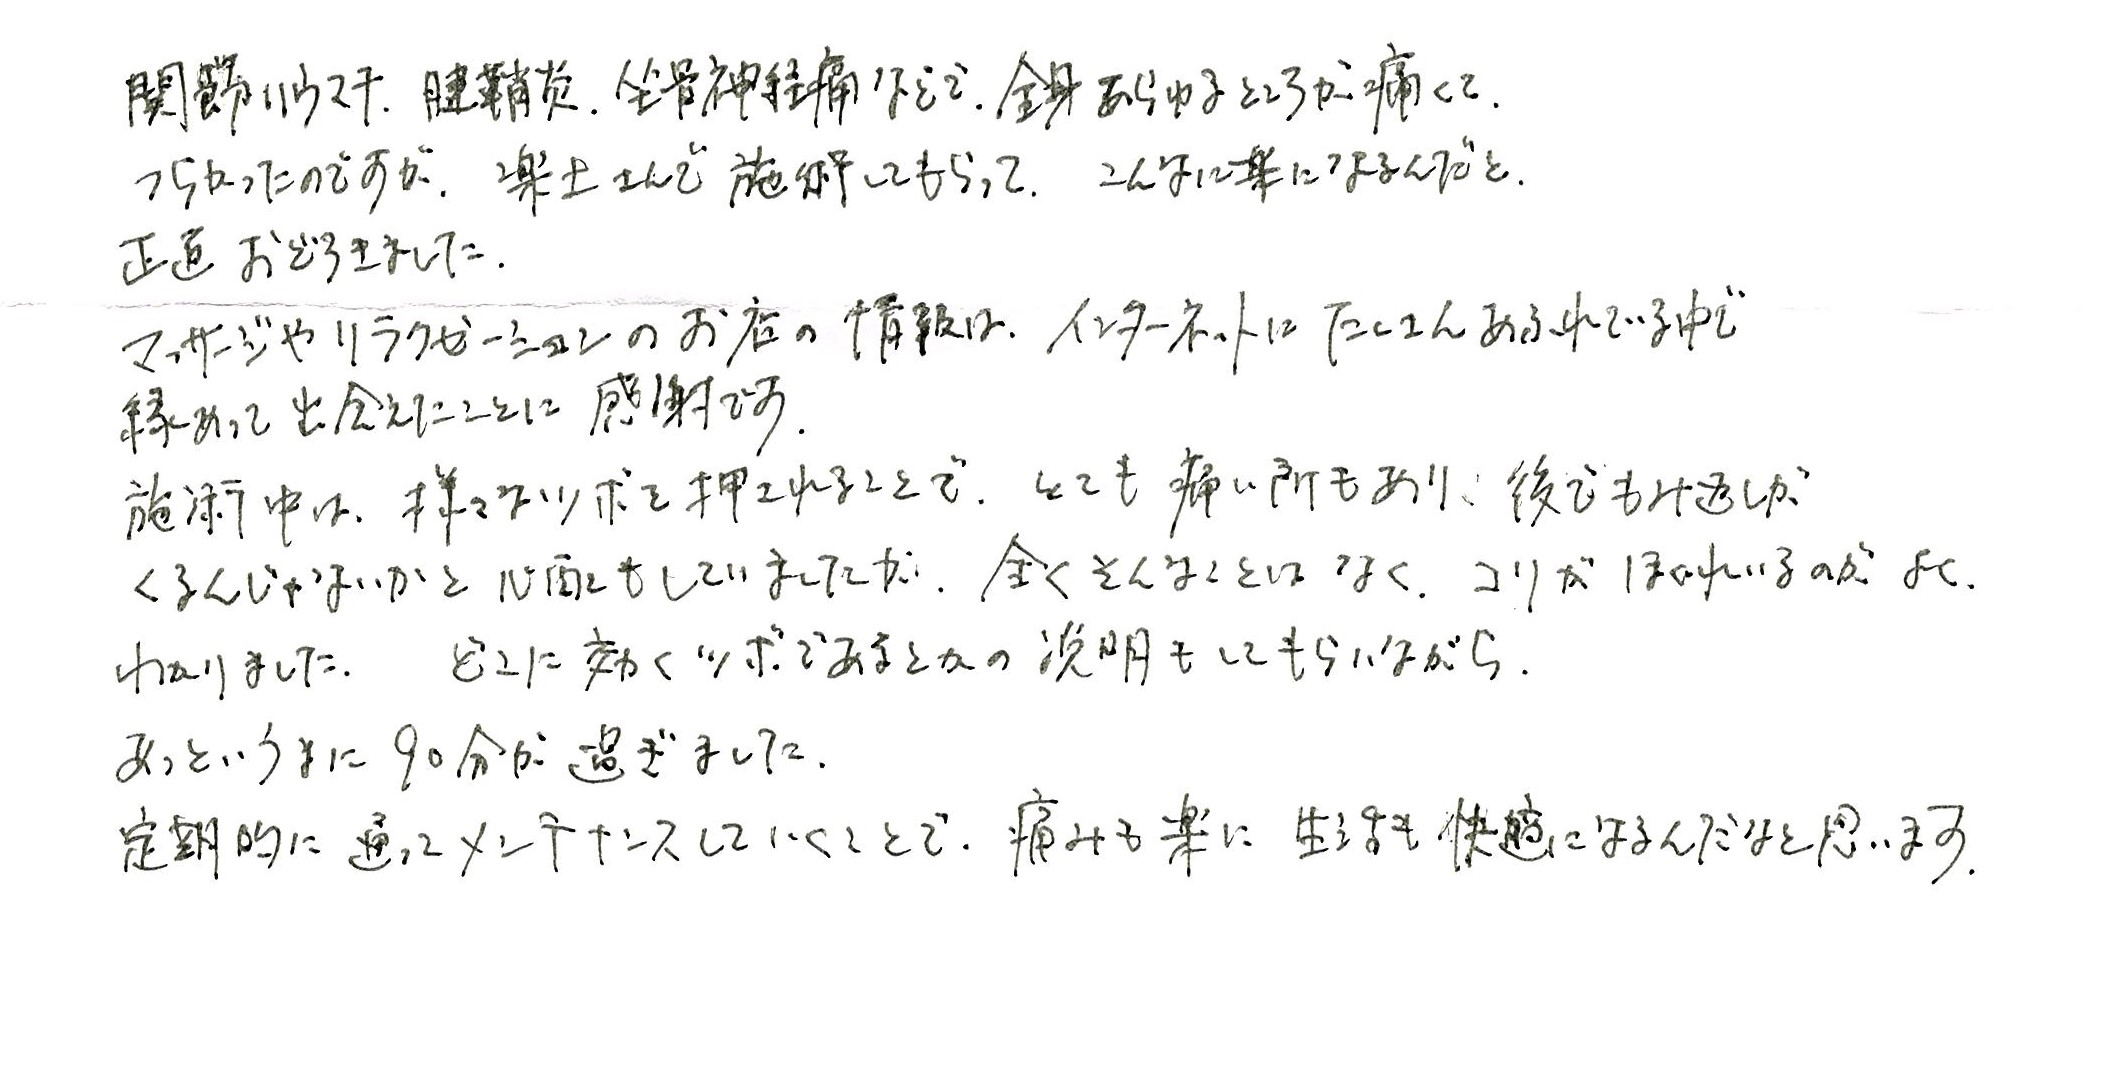 関節リウマチ、腱鞘炎、坐骨神経痛などで、全身あらゆるところが痛くて、
つらかったのですが、楽土さんで施術してもらって、こんなに楽になるんだと、
正直おどろきました。
マッサージやリラクゼーションのお店の情報は、インターネットにたくさんあふれている中で
縁あって出会えたことに感謝です。
施術中は、様々なツボを押されることで、とても痛い所もあり、後でもみ返しが
くるんじゃないかと心配もしていましたが、全くそんなことはなく、コリがほぐれているのがよく、
わかりました。 どこに効くツボであるとかの説明もしてもらいながら、
あっというまに90分が過ぎました。
定期的に通ってメンテナンスしていくことで、痛みも楽に生活も快適になるんだなと思います。